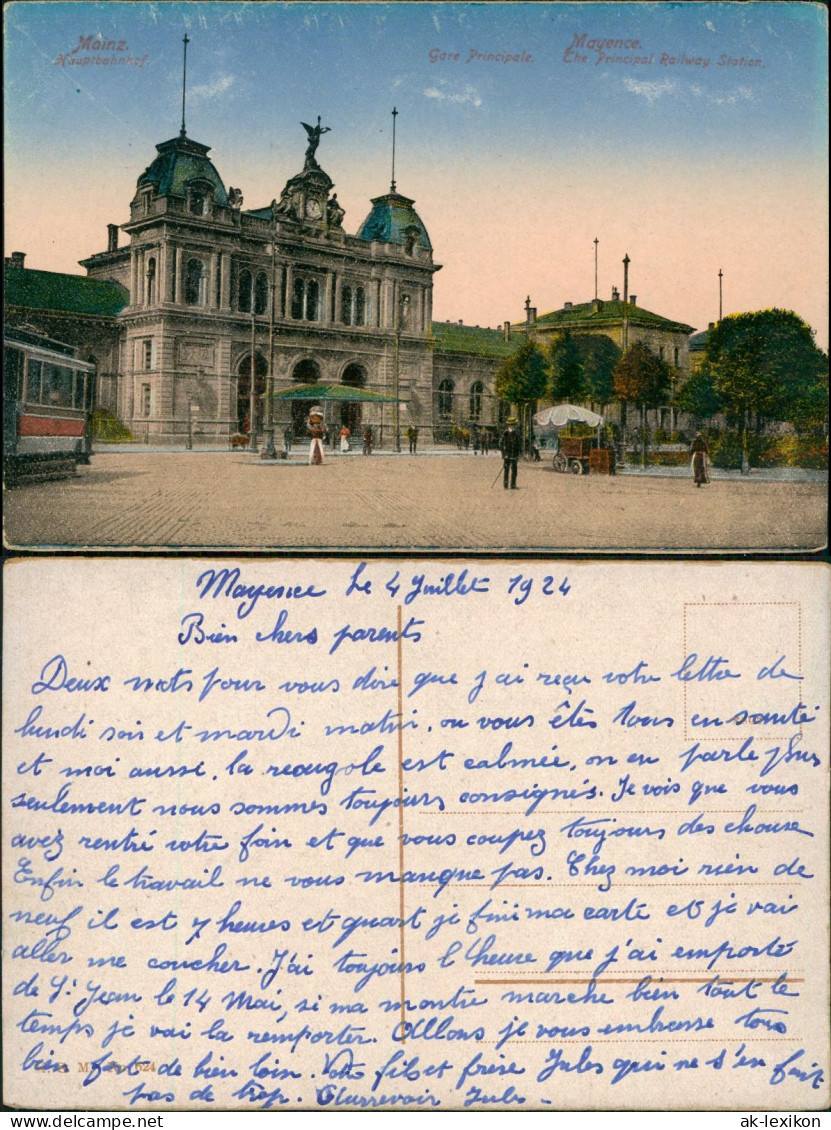 Mainz.
Hauptbahnhof.
Gare Principale.
Mayence.
The Principal Railway Station.
Mayence le 4 Juillet 1924
Bien chers parents
Deux mots pour vous dire que j'ai reçu votre lettre de
lundi soir et mardi matin, ou vous êtes tous en santé
et moi aussi, la est calmée, on en parle plus
seulement nous sommes toujours consignés. Je vois que vous
avez rentré votre foin et que vous coupez toujours des chouse
Enfin le travail ne vous manque pas. Chez moi rien de
neuf il est 7 heures et quart je fini ma carte et je vai
aller me coucher. J'ai toujours l'heure que j'ai emporté
de St Jean le 14 Mai, si ma montre marche bien tout le
temps je vai la remporter. Allons je vous embrasse tous
bien fort de bien loin. Votre fils et frère Jules qui ne s'en fait
pas de trop. Aurrevoir Jules -
624
ak-lexikon